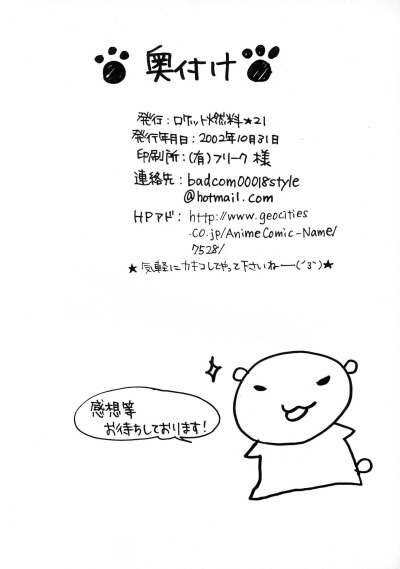 奥付け
発行：ロケット燃料★21
発行年月日：2002年10月31日
印刷所：(有)フリーク 様
連絡先：badcom00018style
@hotmail.com
HPアド：http://www.geocities
.co.jp/AnimeComic-Name/
7528/
★気軽にカキコしてやって下さいねー(´３｀)★
感想等
お待ちしております!